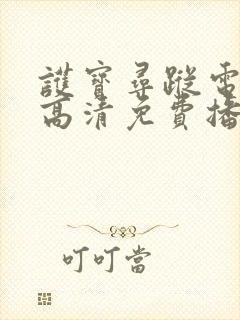 護寶尋蹤電
高清免費播
叮叮當